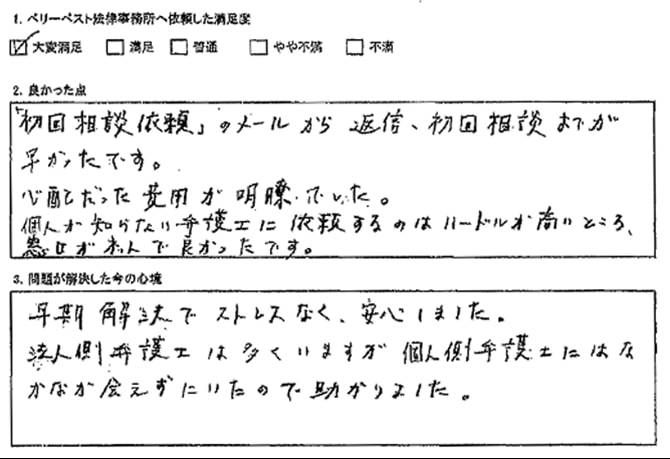 1. ベリーベスト法律事務所へ依頼した満足度
大変満足 満足 普通 やや不満 不満
2. 良かった点
「初回相談依頼」のメールから返信、初回相談までが
早かったです。
心配だった費用が明瞭でした。
個人が知らない弁護士に依頼するのはハードルが高いところ、
窓口が求人で良かったです。
3. 問題が解決した今の心境
早期解決でストレスなく、安心しました。
法人側弁護士は多くいますが個人側弁護士にはな
かなか会えずにいたので助かりました。